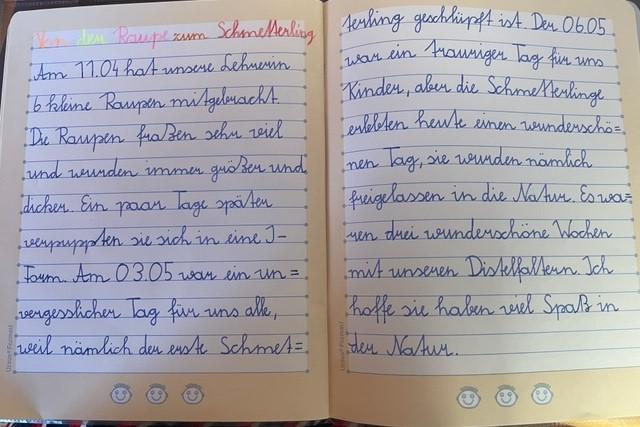 Von der Raupe zum Schmetterling
Am 11.04 hat unsere Lehrerin
6 kleine Raupen mitgebracht.
Die Raupen fraßen sehr viel
und wurden immer größer und
dicker. Ein paar Tage später
verpuppten sie sich in eine J-
Form. Am 03.05 war ein un=
vergesslicher Tag für uns alle,
weil nämlich der erste Schmet=
terling geschlüpft ist. Der 06.05
war ein trauriger Tag für uns
Kinder, aber die Schmetterlinge
erlebten heute einen wunderschö=
nen Tag, sie wurden nämlich
freigelassen in die Natur. Es wa=
ren drei wunderschöne Wochen
mit unseren Distelfaltern. Ich
hoffe sie haben viel Spaß in
der Natur.